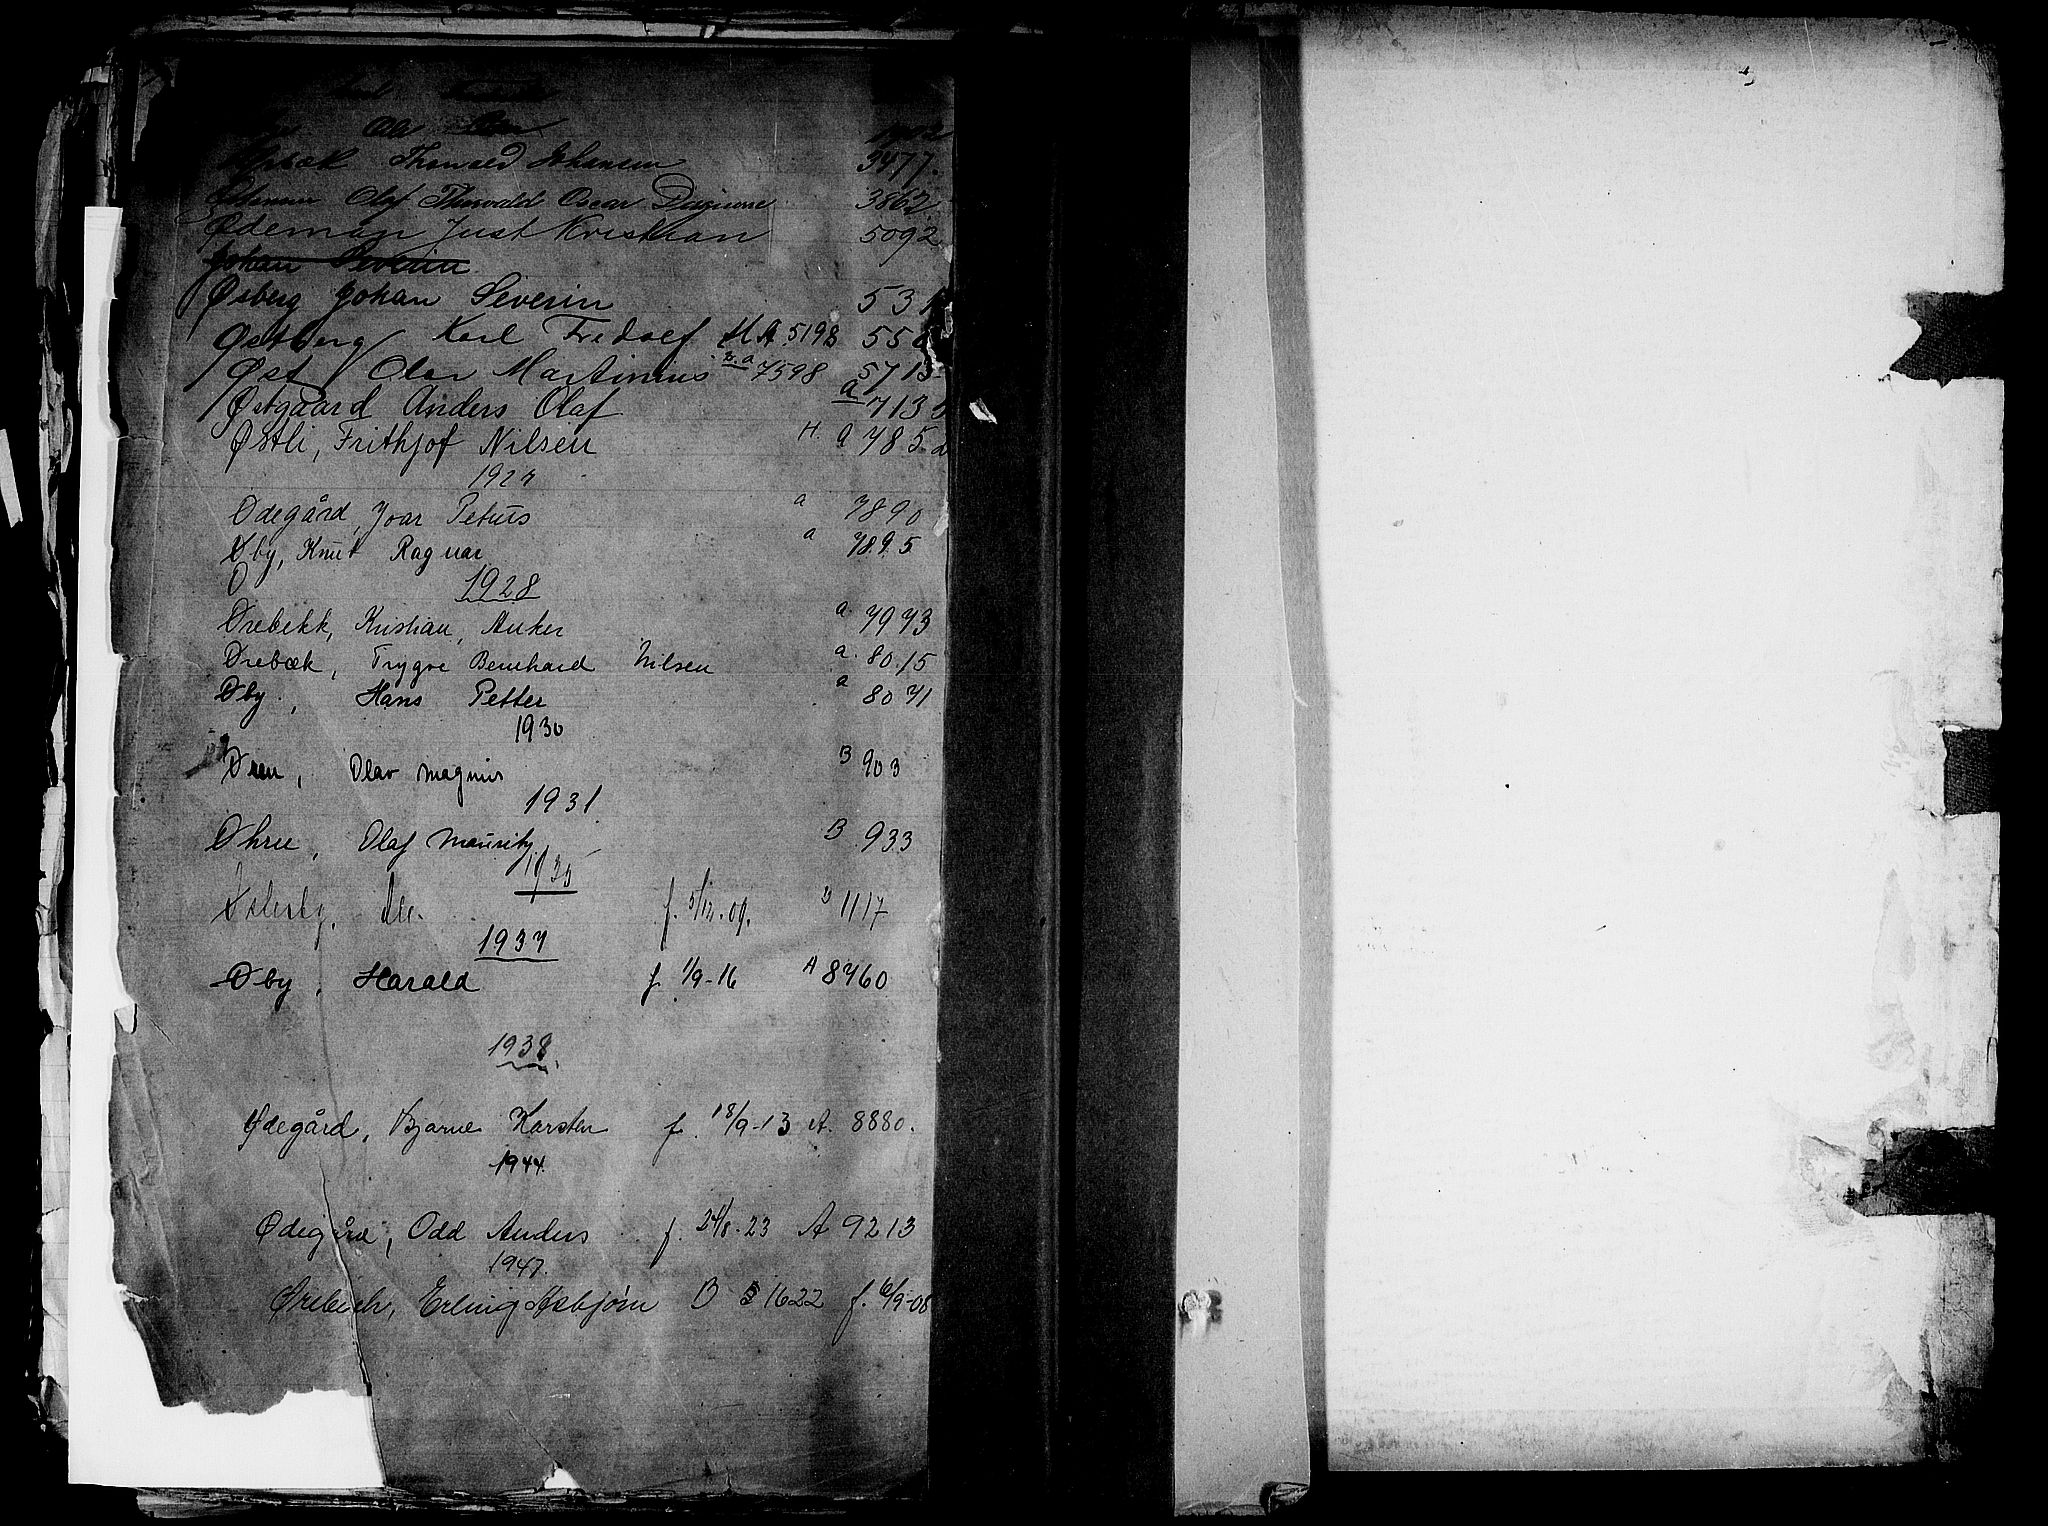 Ole
Thorvald Johansen 3477.
Olaf Thorvald Oscar 3862
Ødeman Just Kristian 5092
Johan Severin
Østberg Johan Severin 531
Østberg Karl Fredolf M A. 5198 55
Øst Olav Martinius 7598 5713
Østgaard Anders Olaf a 713
Østli, Frithjof Nilsen H. a 785
1927
Ødegård, Joar Petrus a 7890
Øby, Knut Ragnar a 7895
1928
Ørebekk, Kristian, Anker a. 7973
Ørebæk, Trygve Bernhard Nilsen a. 8015
Øby, Hans Petter a 8071
1930
Øren, Olav Magnus B 903
1931.
Øhre, Olaf Mauritz B 933
1935
Østerby, Ole. f. 5/12-09. B 1117
1937
Øby, Harald f 1/9-16 A 8760
1938.
Ødegård, Bjarne Karsten f. 18/9-13 A. 8880.
1944.
Ødegård, Odd Anders f. 24/8-23 A 9213
1947.
Ørebech, Erling Asbjørn B 1622 f. 6/9-08